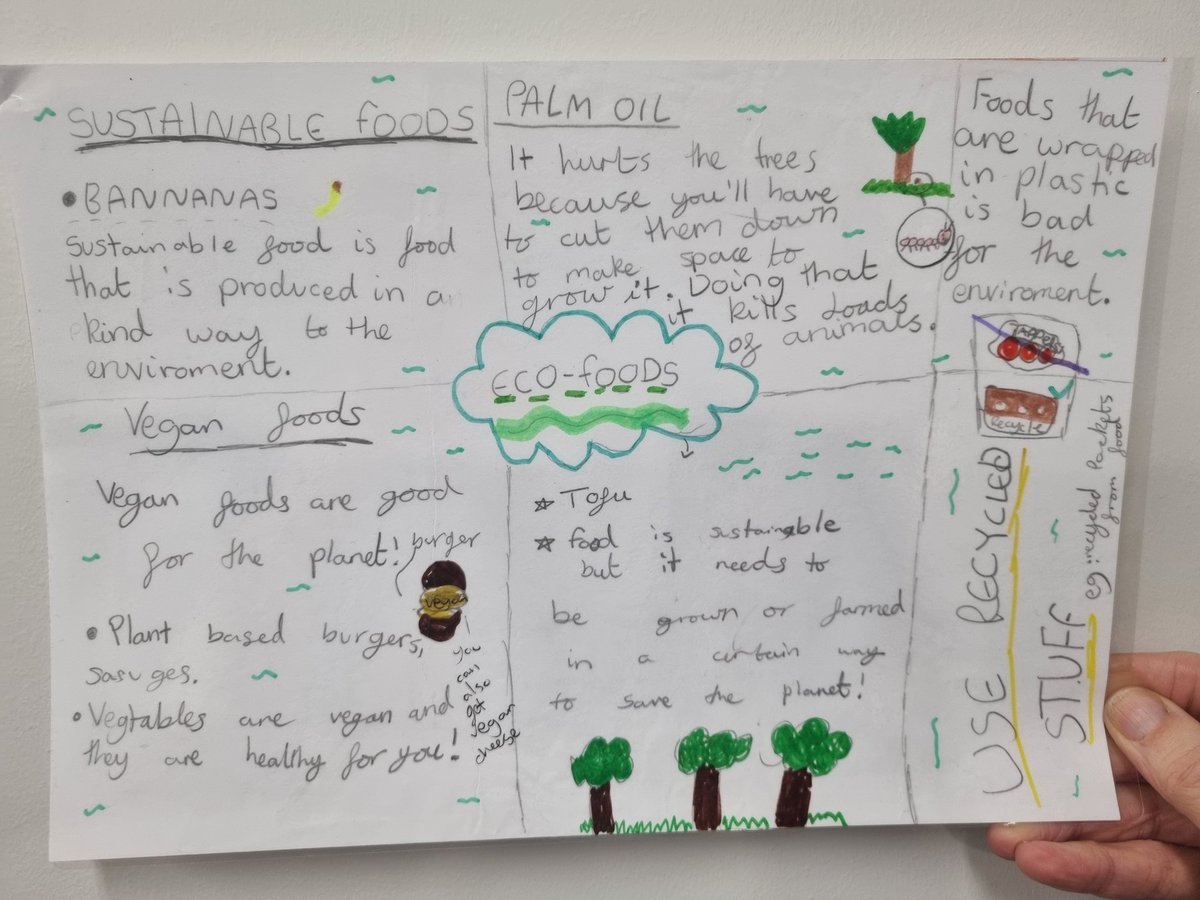 SUSTAINABLE FOODS
• BANNANAS
Sustainable food is food
that is produced in a
kind way to the
enviroment.
PALM OIL
It hurts the trees
because you'll have
to cut them down
to make space to
grow it. Doing that
it kills loads
of animals.
Foods that
are wrapped
in plastic
is bad
for the
enviroment.
Recycle
ECO-FOODS
Vegan foods
Vegan foods are good
for the planet!
burger
vegan
• Plant based burgers,
sasuges.
• Vegtables are vegan and
they are healthy for you!
you
can
also
get
vegan
cheese
☆ Tofu
☆ food is sustainable
but it needs to
be grown or farmed
in a certain way
to save the planet!
USE RECYCLED
STUFF
eg: recycled packets
from food